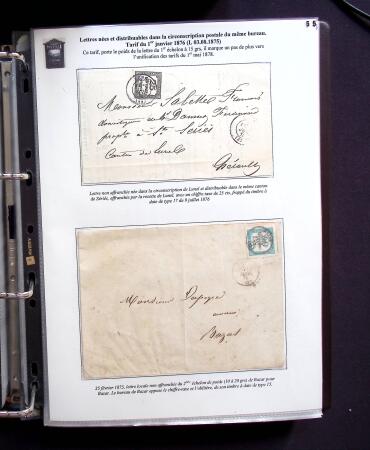 55
Lettres nées et distribuables dans la circonscription postale du même bureau.
Tarif du 1er janvier 1876 (L 03.08.1875)
Ce tarif, porte le poids de la lettre du 1er échelon à 15 grs, il marque un pas de plus vers
l'unification des tarifs du 1er mai 1878.
Monsieur
à St Seriès
Canton de Lunel
Hérault
Lettre non affranchie née dans la circonscription de Lunel et distribuable dans le même canton
de Sériès, affranchies par la recette de Lunel, avec un chiffre taxe de 25 cts, frappé du timbre à
date de type 17 du 9 juillet 1876
Monsieur
Bazas
25 février 1875, lettre locale non affranchie du 2ème échelon de poids (10 à 20 grs) de Bazar pour
Bazar. Le bureau de Bazar appose le chiffre-taxe et l'oblitère, de son timbre à date de type 15.